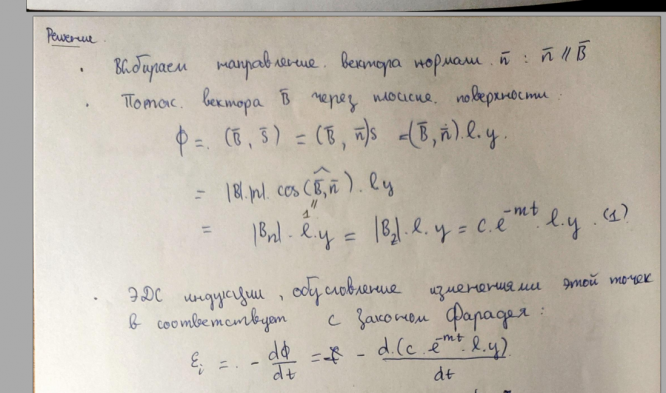 Решение.
• Выбираем направление. вектора нормали. n̄ : n̄ // B̄
• Поток. вектора B̄ через плоские. поверхности:
ϕ = . (B̄, S̄) = (B̄, n̄)s = (B̄, n̄). l. y.
= |B|.|n|. cos(B̄, n̄). ly
1
= |Bn|. l. y = |Bz|. l. y = c. e^-mt. l. y. (1)
• ЭДС индукции, обусловление изменениями этой точек
в соответствует с законом Фарадея:
εi = . - dϕ/dt = - d.(c. e^-mt. l. y)/dt